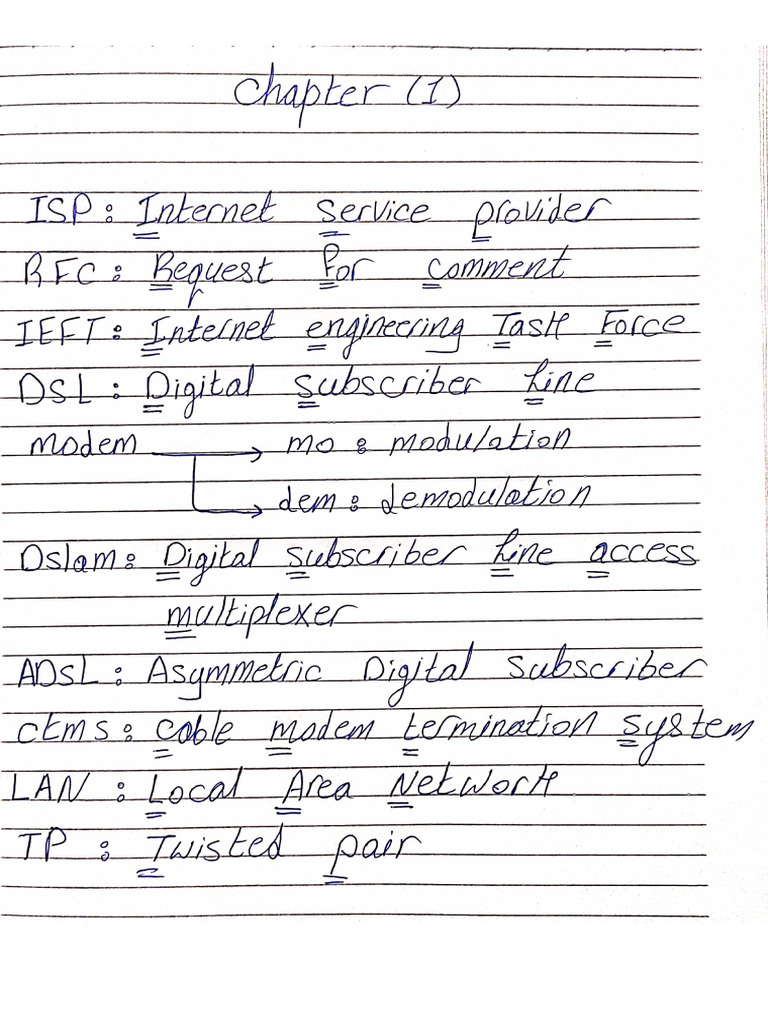 Chapter (1)
ISP: Internet service provider
RFC: Request For comment
IEFT: Internet engineering Task Force
DSL: Digital subscriber line
modem → mo: modulation
dem: demodulation
Dslam: Digital subscriber line access
multiplexer
ADSL: Asymmetric Digital subscriber
ctms: cable modem termination system
LAN: Local Area Network
TP: Twisted pair